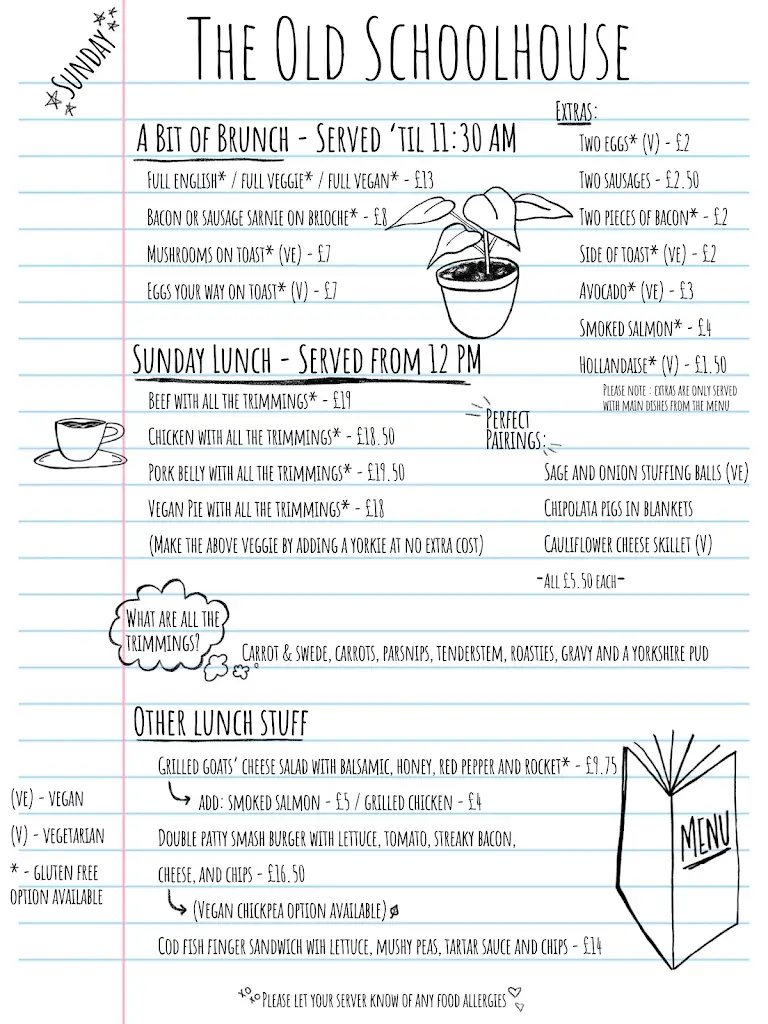 Sunday
The Old Schoolhouse
A Bit of Brunch - Served 'til 11:30 AM
Full English* / full veggie* / full vegan* - £13
Bacon or sausage sarnie on brioche* - £8
Mushrooms on toast* (ve) - £7
Eggs your way on toast* (v) - £7
Extras:
Two eggs* (v) - £2
Two sausages - £2.50
Two pieces of bacon* - £2
Side of toast* (ve) - £2
Avocado* (ve) - £3
Smoked salmon* - £4
Hollandaise* (v) - £1.50
Please note : extras are only served
with main dishes from the menu
Sunday Lunch - Served from 12 PM
Beef with all the trimmings* - £19
Chicken with all the trimmings* - £18.50
Pork belly with all the trimmings* - £19.50
Vegan Pie with all the trimmings* - £18
(Make the above veggie by adding a yorkie at no extra cost)
Perfect
Pairings:
Sage and onion stuffing balls (ve)
Chipolata pigs in blankets
Cauliflower cheese skillet (v)
-All £5.50 each-
What are all the
trimmings?
Carrot & swede, carrots, parsnips, tenderstem, roasties, gravy and a yorkshire pud
Other lunch stuff
Grilled goats' cheese salad with balsamic, honey, red pepper and rocket* - £9.75
add: smoked salmon - £5 / grilled chicken - £4
Double patty smash burger with lettuce, tomato, streaky bacon,
cheese, and chips - £16.50
(Vegan chickpea option available)
Cod fish finger sandwich wih lettuce, mushy peas, tartar sauce and chips - £14
(ve) - vegan
(v) - vegetarian
* - gluten free
option available
MENU
xo xo Please let your server know of any food allergies